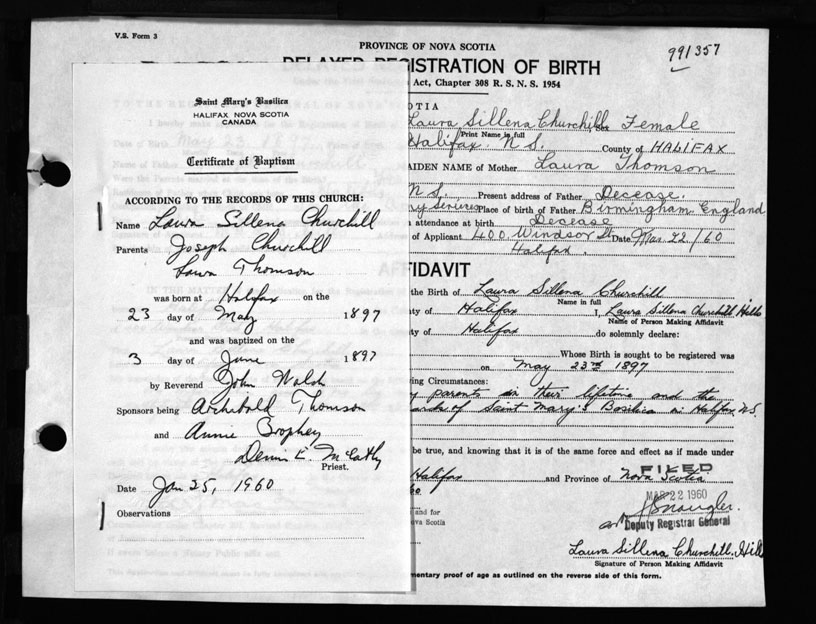 V.S. Form 3
PROVINCE OF NOVA SCOTIA
991357
DELAYED REGISTRATION OF BIRTH
Act, Chapter 308 R. S. N. S. 1954
Saint Mary's Basilica
HALIFAX NOVA SCOTIA
CANADA
Certificate of Baptism
ACCORDING TO THE RECORDS OF THIS CHURCH:
Name Laura Sillena Churchill
Parents Joseph Churchill
Laura Thomson
was born at Halifax on the
23 day of May 1897
and was baptized on the
3 day of June 1897
by Reverend John Walsh
Sponsors being Archibald Thomson
and Annie Brophey
Priest.
Date Jan 25, 1960
Observations
OTIA
Laura Sillena Churchill Sex Female
Print Name in full
Halifax. N S. County of HALIFAX
AIDEN NAME of Mother Laura Thomson
N S. Present address of Father Decease.
Place of birth of Father Birmingham England
attendance at birth Decease
of Applicant 400 Windsor St Date Mar. 22/60
Halifax.
AFFIDAVIT
the Birth of Laura Sillena Churchill
Name in full
ty of Halifax I, Laura Sillena Churchill Hills
Name of Person Making Affidavit
ty of Halifax do solemnly declare:
Whose Birth is sought to be registered was
on May 23rd 1897
ing Circumstances:
y parents in their lifetime and the
of Saint Mary's Basilica in Halifax N.S.
be true, and knowing that it is of the same force and effect as if made under
Halifax and Province of Nova Scotia
FILED
MAR 22 1960
and for
va Scotia
Deputy Registrar General
Laura Sillena Churchill. Hill
Signature of Person Making Affidavit
mentary proof of age as outlined on the reverse side of this form.